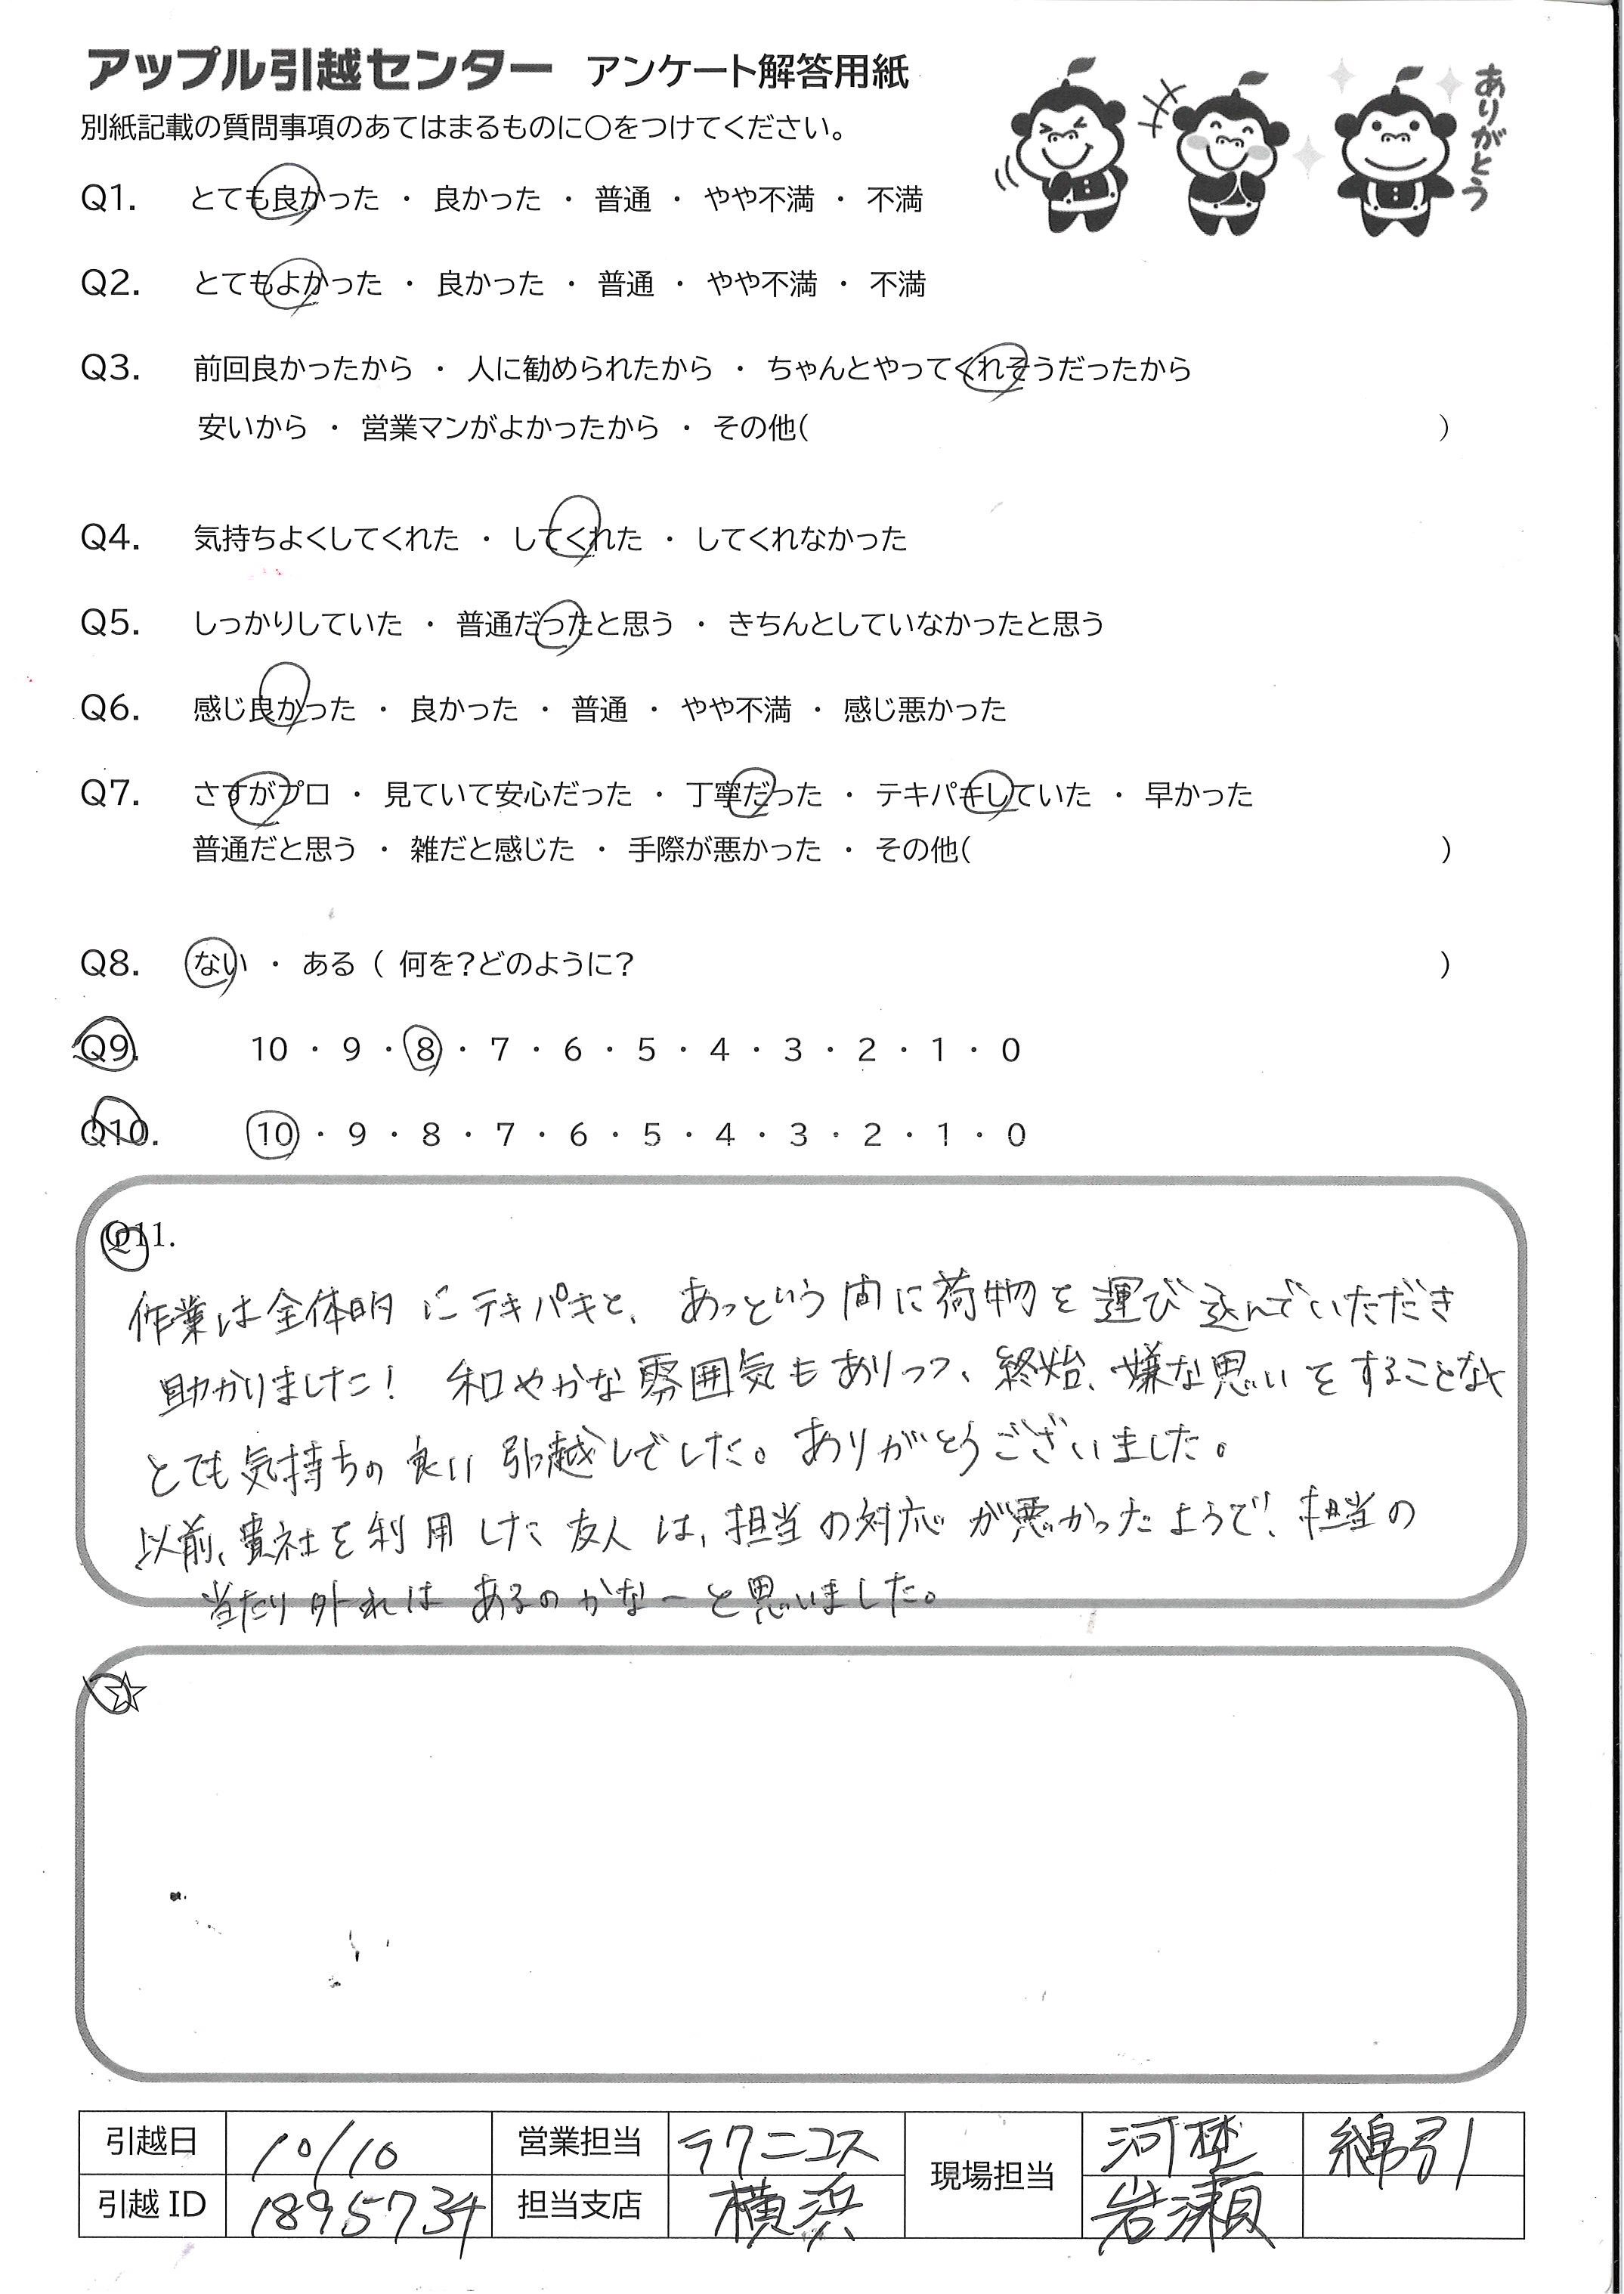 アップル引越センター アンケート解答用紙
ありがとう
別紙記載の質問事項のあてはまるものに○をつけてください。
Q1. とても良かった ・ 良かった ・ 普通 ・ やや不満 ・ 不満
Q2. とてもよかった ・ 良かった ・ 普通 ・ やや不満 ・ 不満
Q3. 前回良かったから ・ 人に勧められたから ・ ちゃんとやってくれそうだったから
安いから ・ 営業マンがよかったから ・ その他( )
Q4. 気持ちよくしてくれた ・ してくれた ・ してくれなかった
Q5. しっかりしていた ・ 普通だったと思う ・ きちんとしていなかったと思う
Q6. 感じ良かった ・ 良かった ・ 普通 ・ やや不満 ・ 感じ悪かった
Q7. さすがプロ ・ 見ていて安心だった ・ 丁寧だった ・ テキパキしていた ・ 早かった
普通だと思う ・ 雑だと感じた ・ 手際が悪かった ・ その他( )
Q8. ない ・ ある ( 何を?どのように? )
Q9. 10 ・ 9 ・ 8 ・ 7 ・ 6 ・ 5 ・ 4 ・ 3 ・ 2 ・ 1 ・ 0
Q10. 10 ・ 9 ・ 8 ・ 7 ・ 6 ・ 5 ・ 4 ・ 3 ・ 2 ・ 1 ・ 0
Q11.
作業は全体的にテキパキと、あっという間に荷物を運び込んでいただき
助かりました! 和やかな雰囲気もありつつ、終始、嫌な思いをすることなく
とても気持ちの良い引越しでした。ありがとうございました。
以前、貴社を利用した友人は、担当の対応が悪かったようで、担当の
当たり外れはあるのかなーと思いました。
☆
引越日 10/10 営業担当 テクニコス 現場担当 河埜 綿引
引越ID 1895734 担当支店 横浜 岩瀬